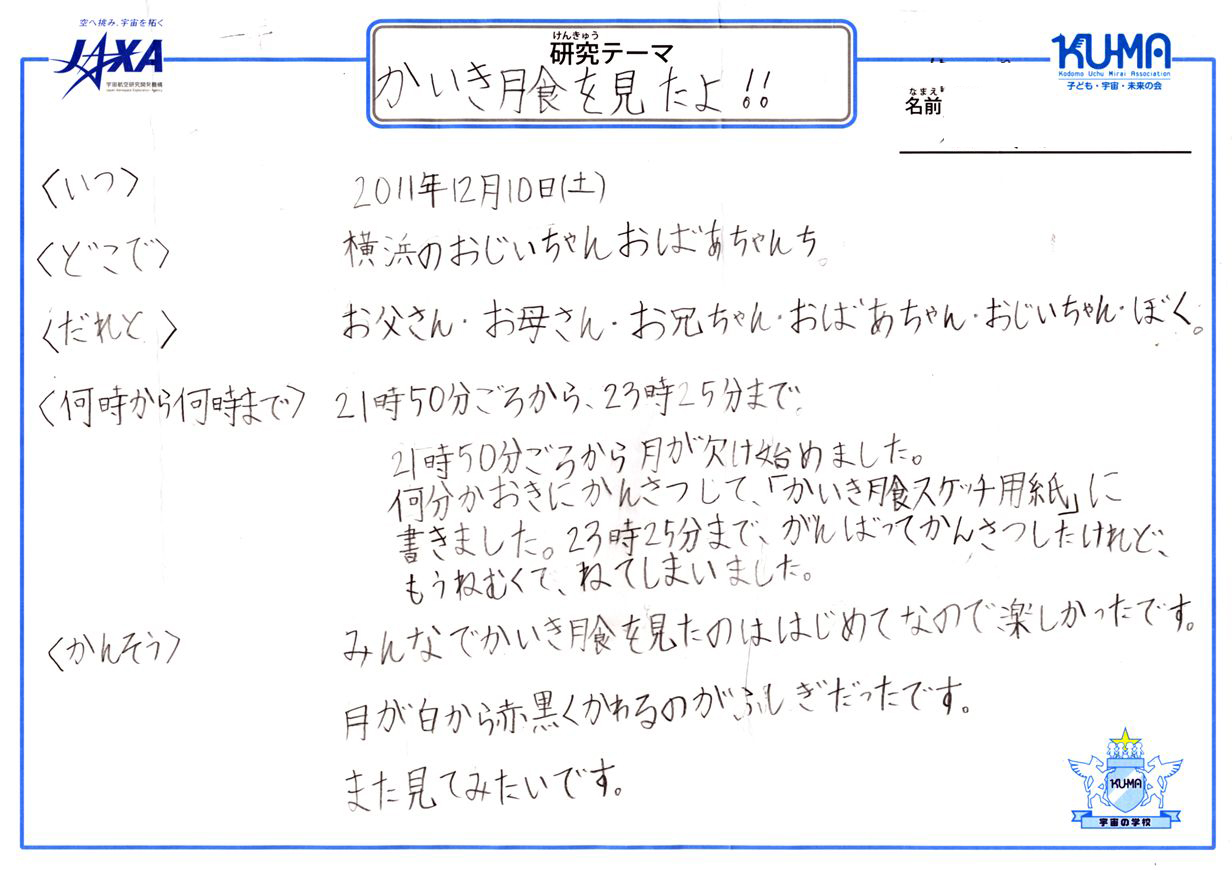 空へ挑み、宇宙を拓く
JAXA
宇宙航空研究開発機構
Japan Aerospace Exploration Agency
けんきゅう
研究テーマ
かいき月食を見たよ!!
KU-MA
Kodomo Uchu Mirai Association
子ども・宇宙・未来の会
なまえ
名前
〈いつ〉 2011年12月10日(土)
〈どこで〉 横浜のおじいちゃんおばあちゃんち。
〈だれと〉 お父さん・お母さん・お兄ちゃん・おばあちゃん・おじいちゃん・ぼく。
〈何時から何時まで〉 21時50分ごろから、23時25分まで、
21時50分ごろから月が欠け始めました。
何分かおきにかんさつして、「かいき月食スケッチ用紙」に
書きました。23時25分まで、がんばってかんさつしたけれど、
もうねむくて、ねてしまいました。
〈かんそう〉 みんなでかいき月食を見たのははじめてなので楽しかったです。
月が白から赤黒くかわるのがふしぎだったです。
また見てみたいです。
KU-MA
宇宙の学校